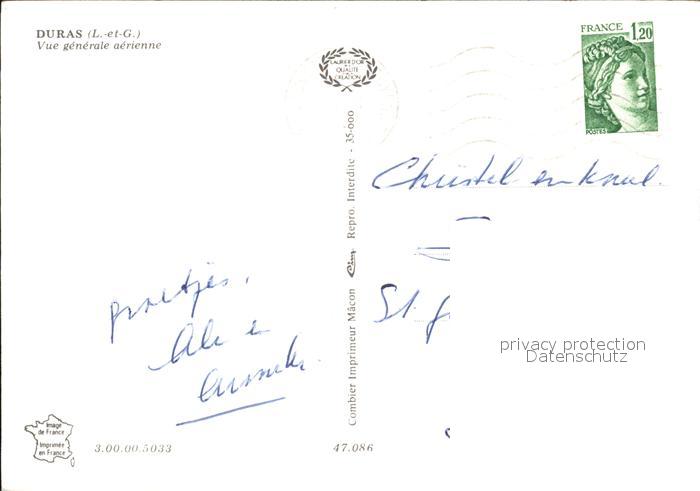 DURAS (L.-et-G.)
Vue générale aérienne
LAURIER D'OR
DE
QUALITÉ
CRÉATION
FRANCE 1,20
POSTES
Combier Imprimeur Mâcon Cim Repro. Interdite - 35-000
Christel en
St.
groetjes,
en
privacy protection
Datenschutz
Image
de France
Imprimée
en France
3.00.00.5033
47.086